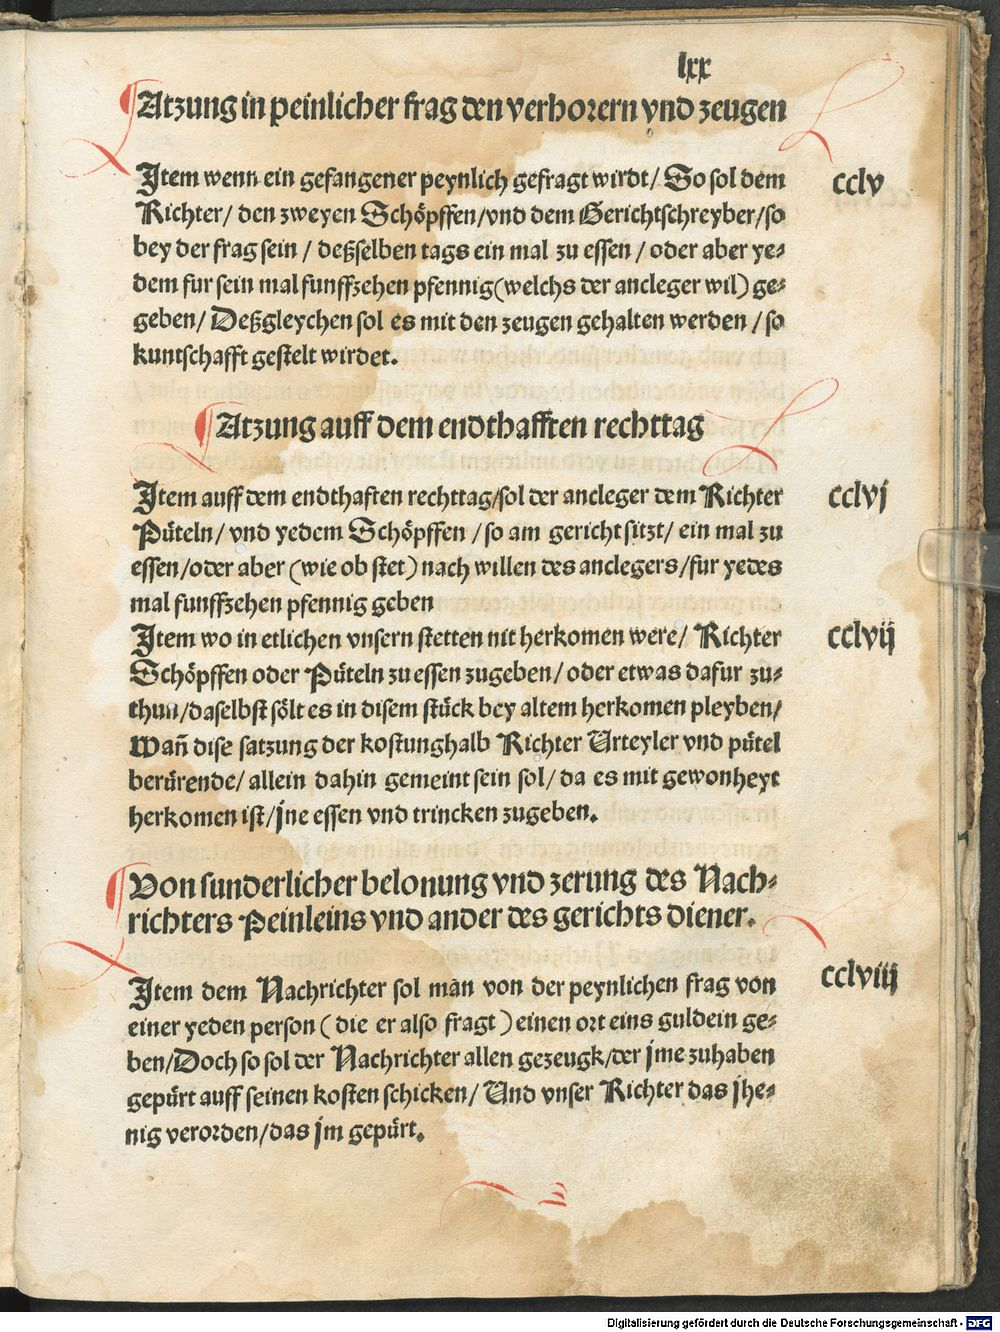 lxx
Atzung in peinlicher frag den verhorern vnd zeugen
Item wenn ein gefangener peynlich gefragt wirdt/ So sol dem
cclv
Richter/ den zweyen Schöpffen/vnd dem Gerichtschreyber/so
bey der frag sein / deßselben tags ein mal zu essen / oder aber ye⸗
dem fur sein mal funffzehen pfennig(welchs der ancleger wil) ge⸗
geben/ Deßgleychen sol es mit den zeugen gehalten werden /so
kuntschafft gestelt wirdet.
Atzung auff dem endthafften rechttag
Item auff dem endthaften rechttag/sol der ancleger dem Richter
cclvj
Püteln/ vnd yedem Schöpffen /so am gericht sitzt/ ein mal zu
essen/oder aber (wie ob stet) nach willen des anclegers/fur yedes
mal funffzehen pfennig geben
Item wo in etlichen vnsern stetten nit herkomen were/ Richter
cclvij
Schöpffen oder Püteln zu essen zugeben/ oder etwas dafur zu⸗
thun/daselbst sölt es in disem stück bey altem herkomen pleyben/
Wañ dise satzung der kostunghalb Richter Urteyler vnd pütel
berürende/ allein dahin gemeint sein sol/ da es mit gewonheyt
herkomen ist/jne essen vnd trincken zugeben.
Von sunderlicher belonung vnd zerung des Nach⸗
richters Peinleins vnd ander des gerichts diener.
Item dem Nachrichter sol man von der peynlichen frag von
cclviij
einer yeden person ( die er also fragt ) einen ort eins guldein ge⸗
ben/Doch so sol der Nachrichter allen gezeugk/der jme zuhaben
gepürt auff seinen kosten schicken/ Und vnser Richter das jhe⸗
nig verorden/das jm gepürt.
Digitalisierung gefördert durch die Deutsche Forschungsgemeinschaft - DFG